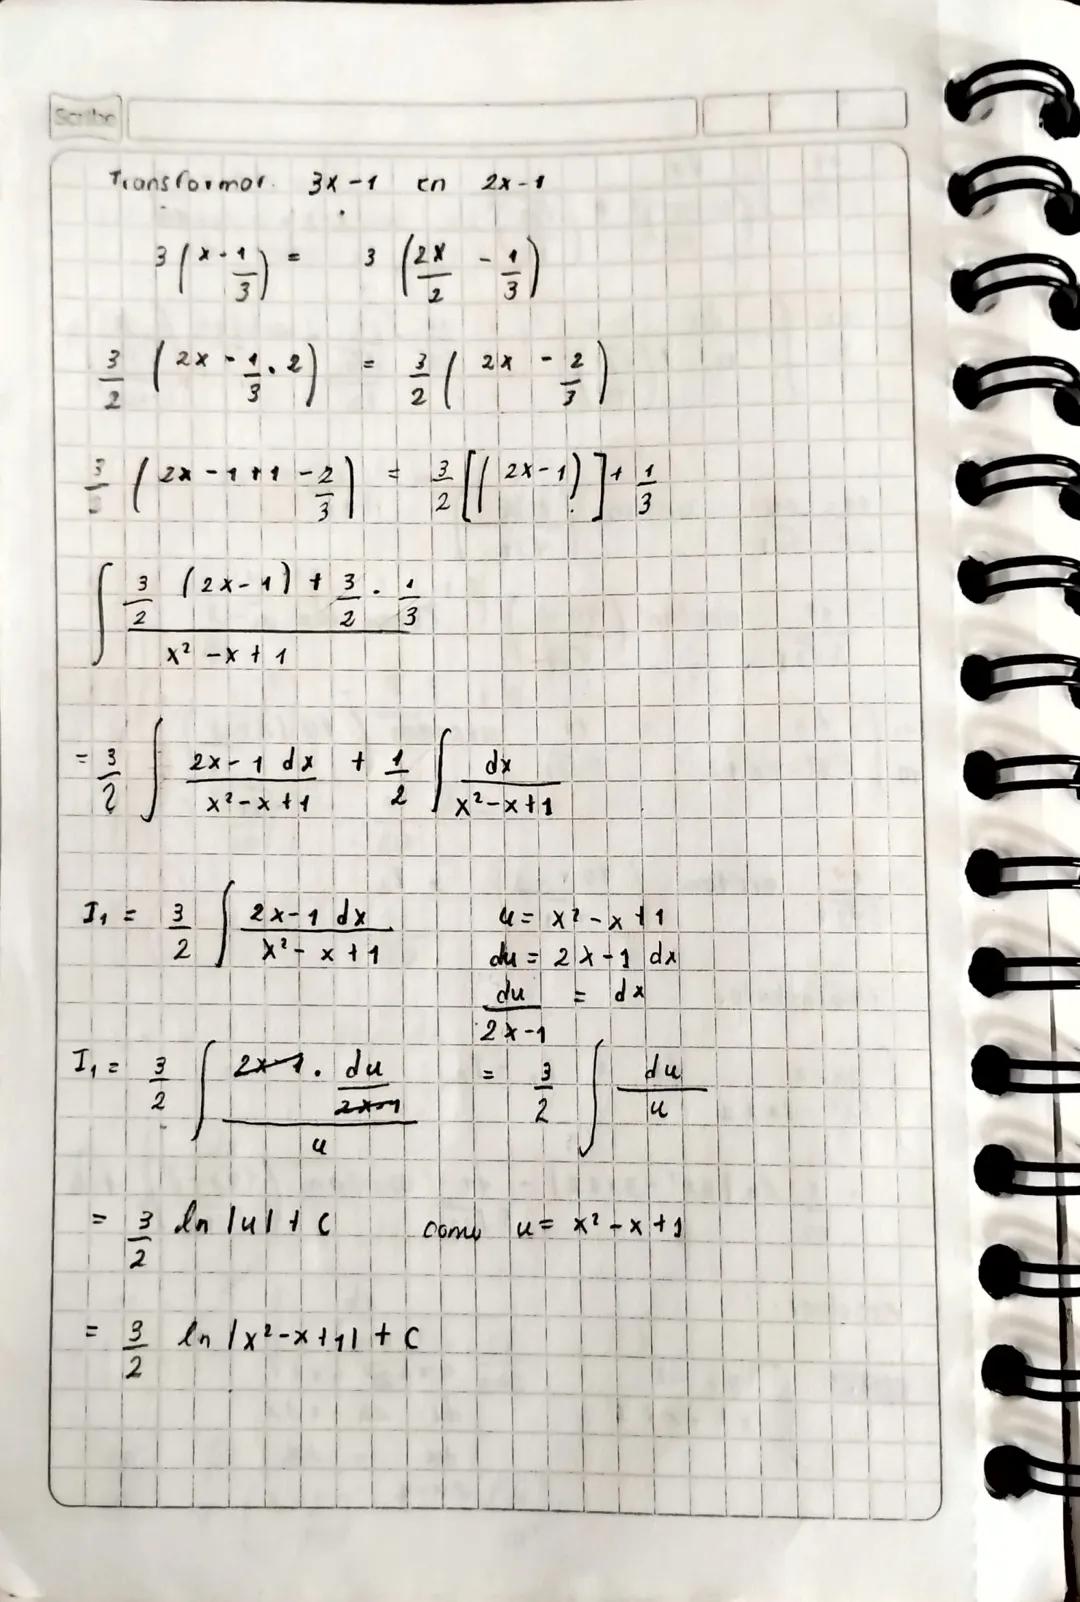 Scribe
Transformar 3x-1 en 2x-1
3 (x - 1/3) = 3 (2x/2 - 1/3)
3/2 (2x - 1/3 . 2) = 3/2 (2x - 2/3)
3/2 (2x - 1 + 1 - 2/3) = 3/2 [(2x-1)] + 1/3
∫ (3/2 (2x-1) + 3/2 . 1/3) / (x² - x + 1)
= 3/2 ∫ (2x-1 dx)/(x²-x+1) + 1/2 ∫ dx/(x²-x+1)
I₁ = 3/2 ∫ (2x-1 dx)/(x²-x+1) u = x²-x+1
du = 2x-1 dx
du/(2x-1) = dx
I₁ = 3/2 ∫ (2x-1 . du/(2x-1))/u = 3/2 ∫ du/u
= 3/2 ln |u| + C como u = x²-x+1
= 3/2 ln |x²-x+1| + C